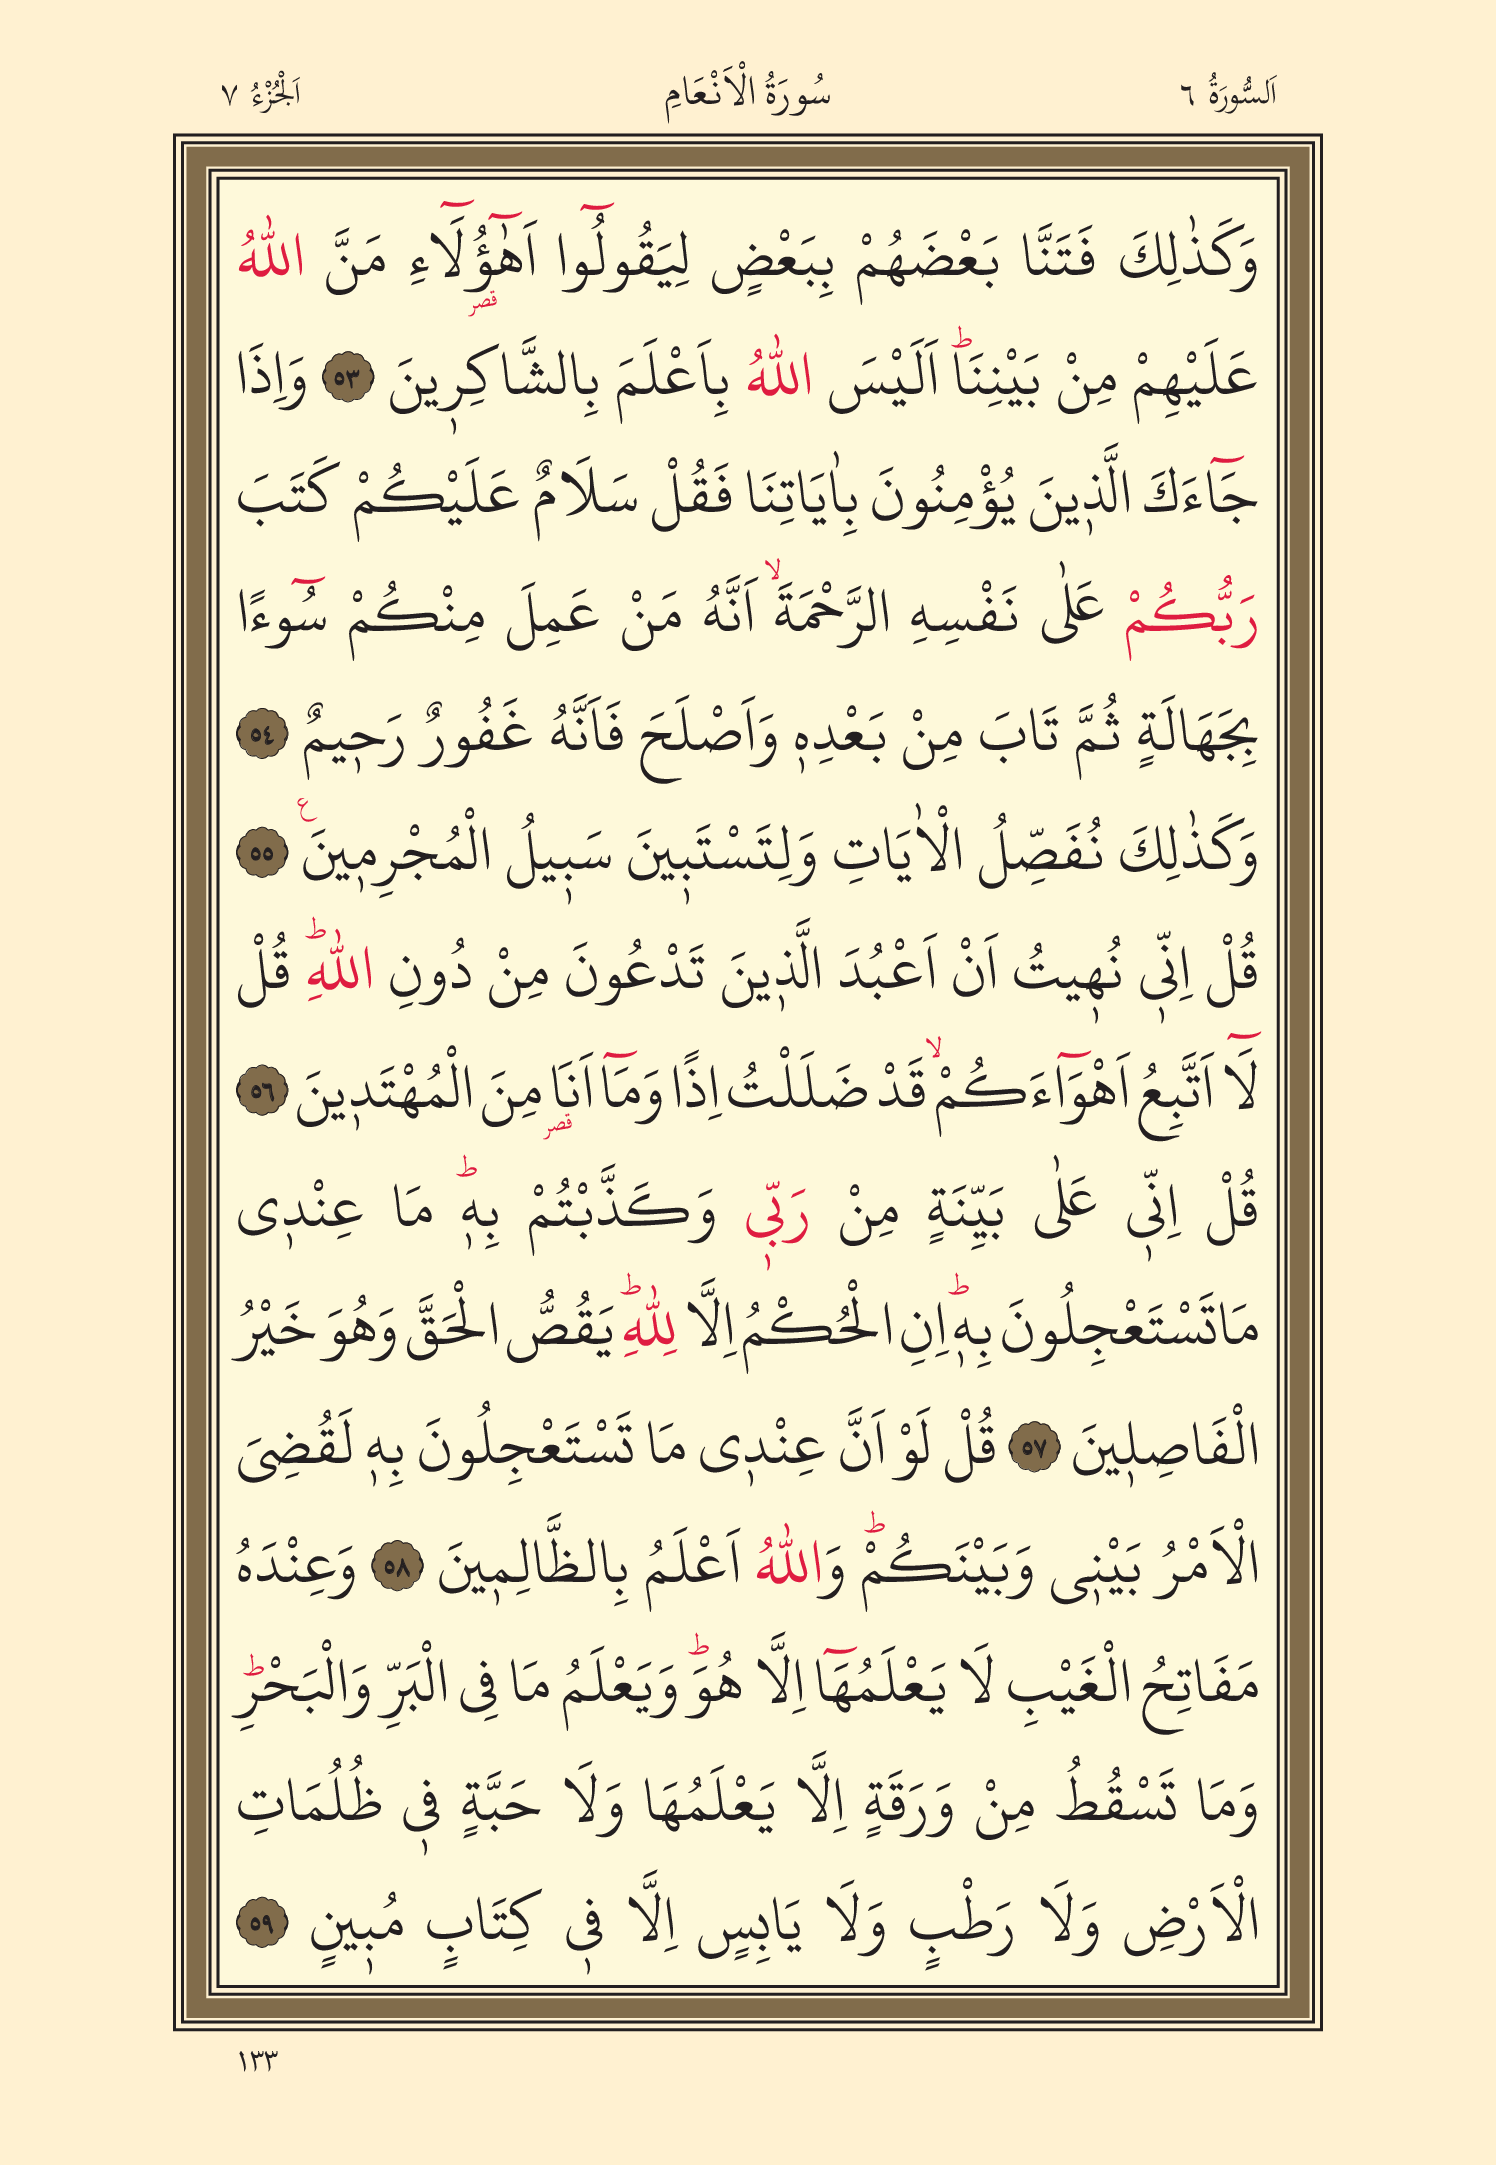 اَلسُّورَةُ ٦ سُورَةُ الْاَنْعَامِ اَلْجُزْءُ ٧
وَكَذٰلِكَ فَتَنَّا بَعْضَهُمْ بِبَعْضٍ لِيَقُولُٓوا اَهٰٓؤُ۬لَٓاءِ مَنَّ اللّٰهُ
قصر
عَلَيْهِمْ مِنْ بَيْنِنَاۜ اَلَيْسَ اللّٰهُ بِاَعْلَمَ بِالشَّاكِر۪ينَ ﴿٥٣﴾ وَاِذَا
جَٓاءَكَ الَّذ۪ينَ يُؤْمِنُونَ بِاٰيَاتِنَا فَقُلْ سَلَامٌ عَلَيْكُمْ كَتَبَ
رَبُّكُمْ عَلٰى نَفْسِهِ الرَّحْمَةَۙ اَنَّهُ مَنْ عَمِلَ مِنْكُمْ سُٓوءًا
بِجَهَالَةٍ ثُمَّ تَابَ مِنْ بَعْدِه۪ وَاَصْلَحَ فَاَنَّهُ غَفُورٌ رَح۪يمٌ ﴿٥٤﴾
وَكَذٰلِكَ نُفَصِّلُ الْاٰيَاتِ وَلِتَسْتَب۪ينَ سَب۪يلُ الْمُجْرِم۪ينَ۟ ﴿٥٥﴾
قُلْ اِنّ۪ي نُه۪يتُ اَنْ اَعْبُدَ الَّذ۪ينَ تَدْعُونَ مِنْ دُونِ اللّٰهِۜ قُلْ
لَٓا اَتَّبِعُ اَهْوَٓاءَكُمْۙ قَدْ ضَلَلْتُ اِذًا وَمَٓا اَنَا۬ مِنَ الْمُهْتَد۪ينَ ﴿٥٦﴾
قصر
قُلْ اِنّ۪ي عَلٰى بَيِّنَةٍ مِنْ رَبّ۪ي وَكَذَّبْتُمْ بِه۪ۜ مَا عِنْد۪ي
مَاتَسْتَعْجِلُونَ بِه۪ۜ اِنِ الْحُكْمُ اِلَّا لِلّٰهِۜ يَقُصُّ الْحَقَّ وَهُوَ خَيْرُ
الْفَاصِل۪ينَ ﴿٥٧﴾ قُلْ لَوْ اَنَّ عِنْد۪ي مَا تَسْتَعْجِلُونَ بِه۪ لَقُضِيَ
الْاَمْرُ بَيْن۪ي وَبَيْنَكُمْۜ وَاللّٰهُ اَعْلَمُ بِالظَّالِم۪ينَ ﴿٥٨﴾ وَعِنْدَهُ
مَفَاتِحُ الْغَيْبِ لَا يَعْلَمُهَٓا اِلَّا هُوَۜ وَيَعْلَمُ مَا فِي الْبَرِّ وَالْبَحْرِۜ
وَمَا تَسْقُطُ مِنْ وَرَقَةٍ اِلَّا يَعْلَمُهَا وَلَا حَبَّةٍ ف۪ي ظُلُمَاتِ
الْاَرْضِ وَلَا رَطْبٍ وَلَا يَابِسٍ اِلَّا ف۪ي كِتَابٍ مُب۪ينٍ ﴿٥٩﴾
١٣٣